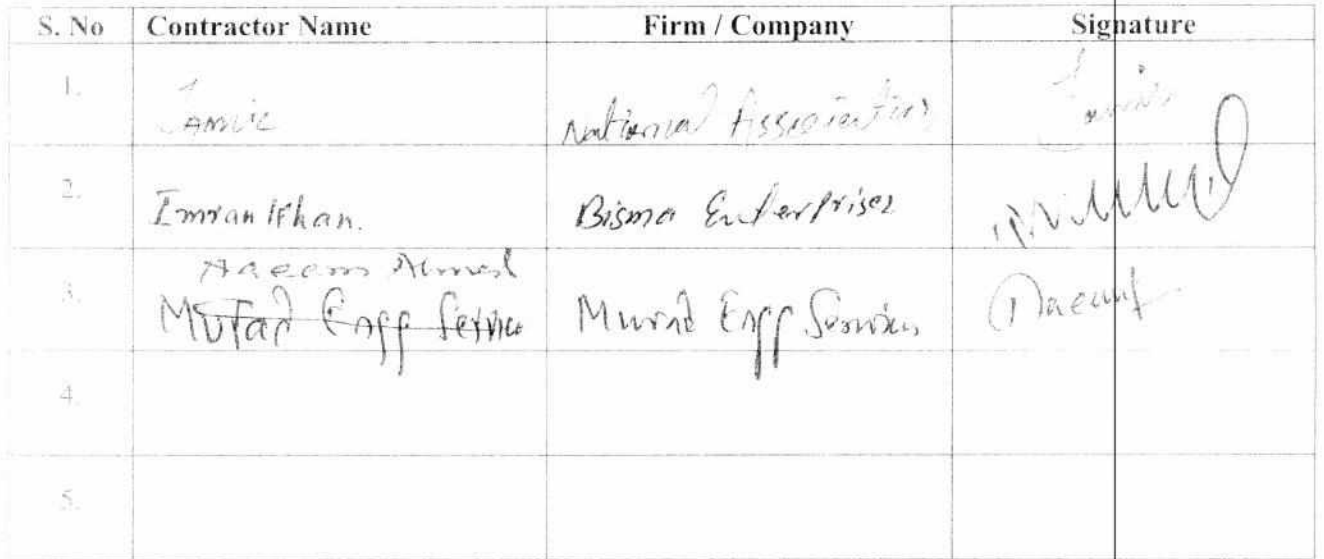 S. No Contractor Name Firm / Company Signature
1. National
2. Imran Khan. Bisma Enterprises
Ahmed
3. Murad Engg Service Murad Engg Services Naeem
4.
5.